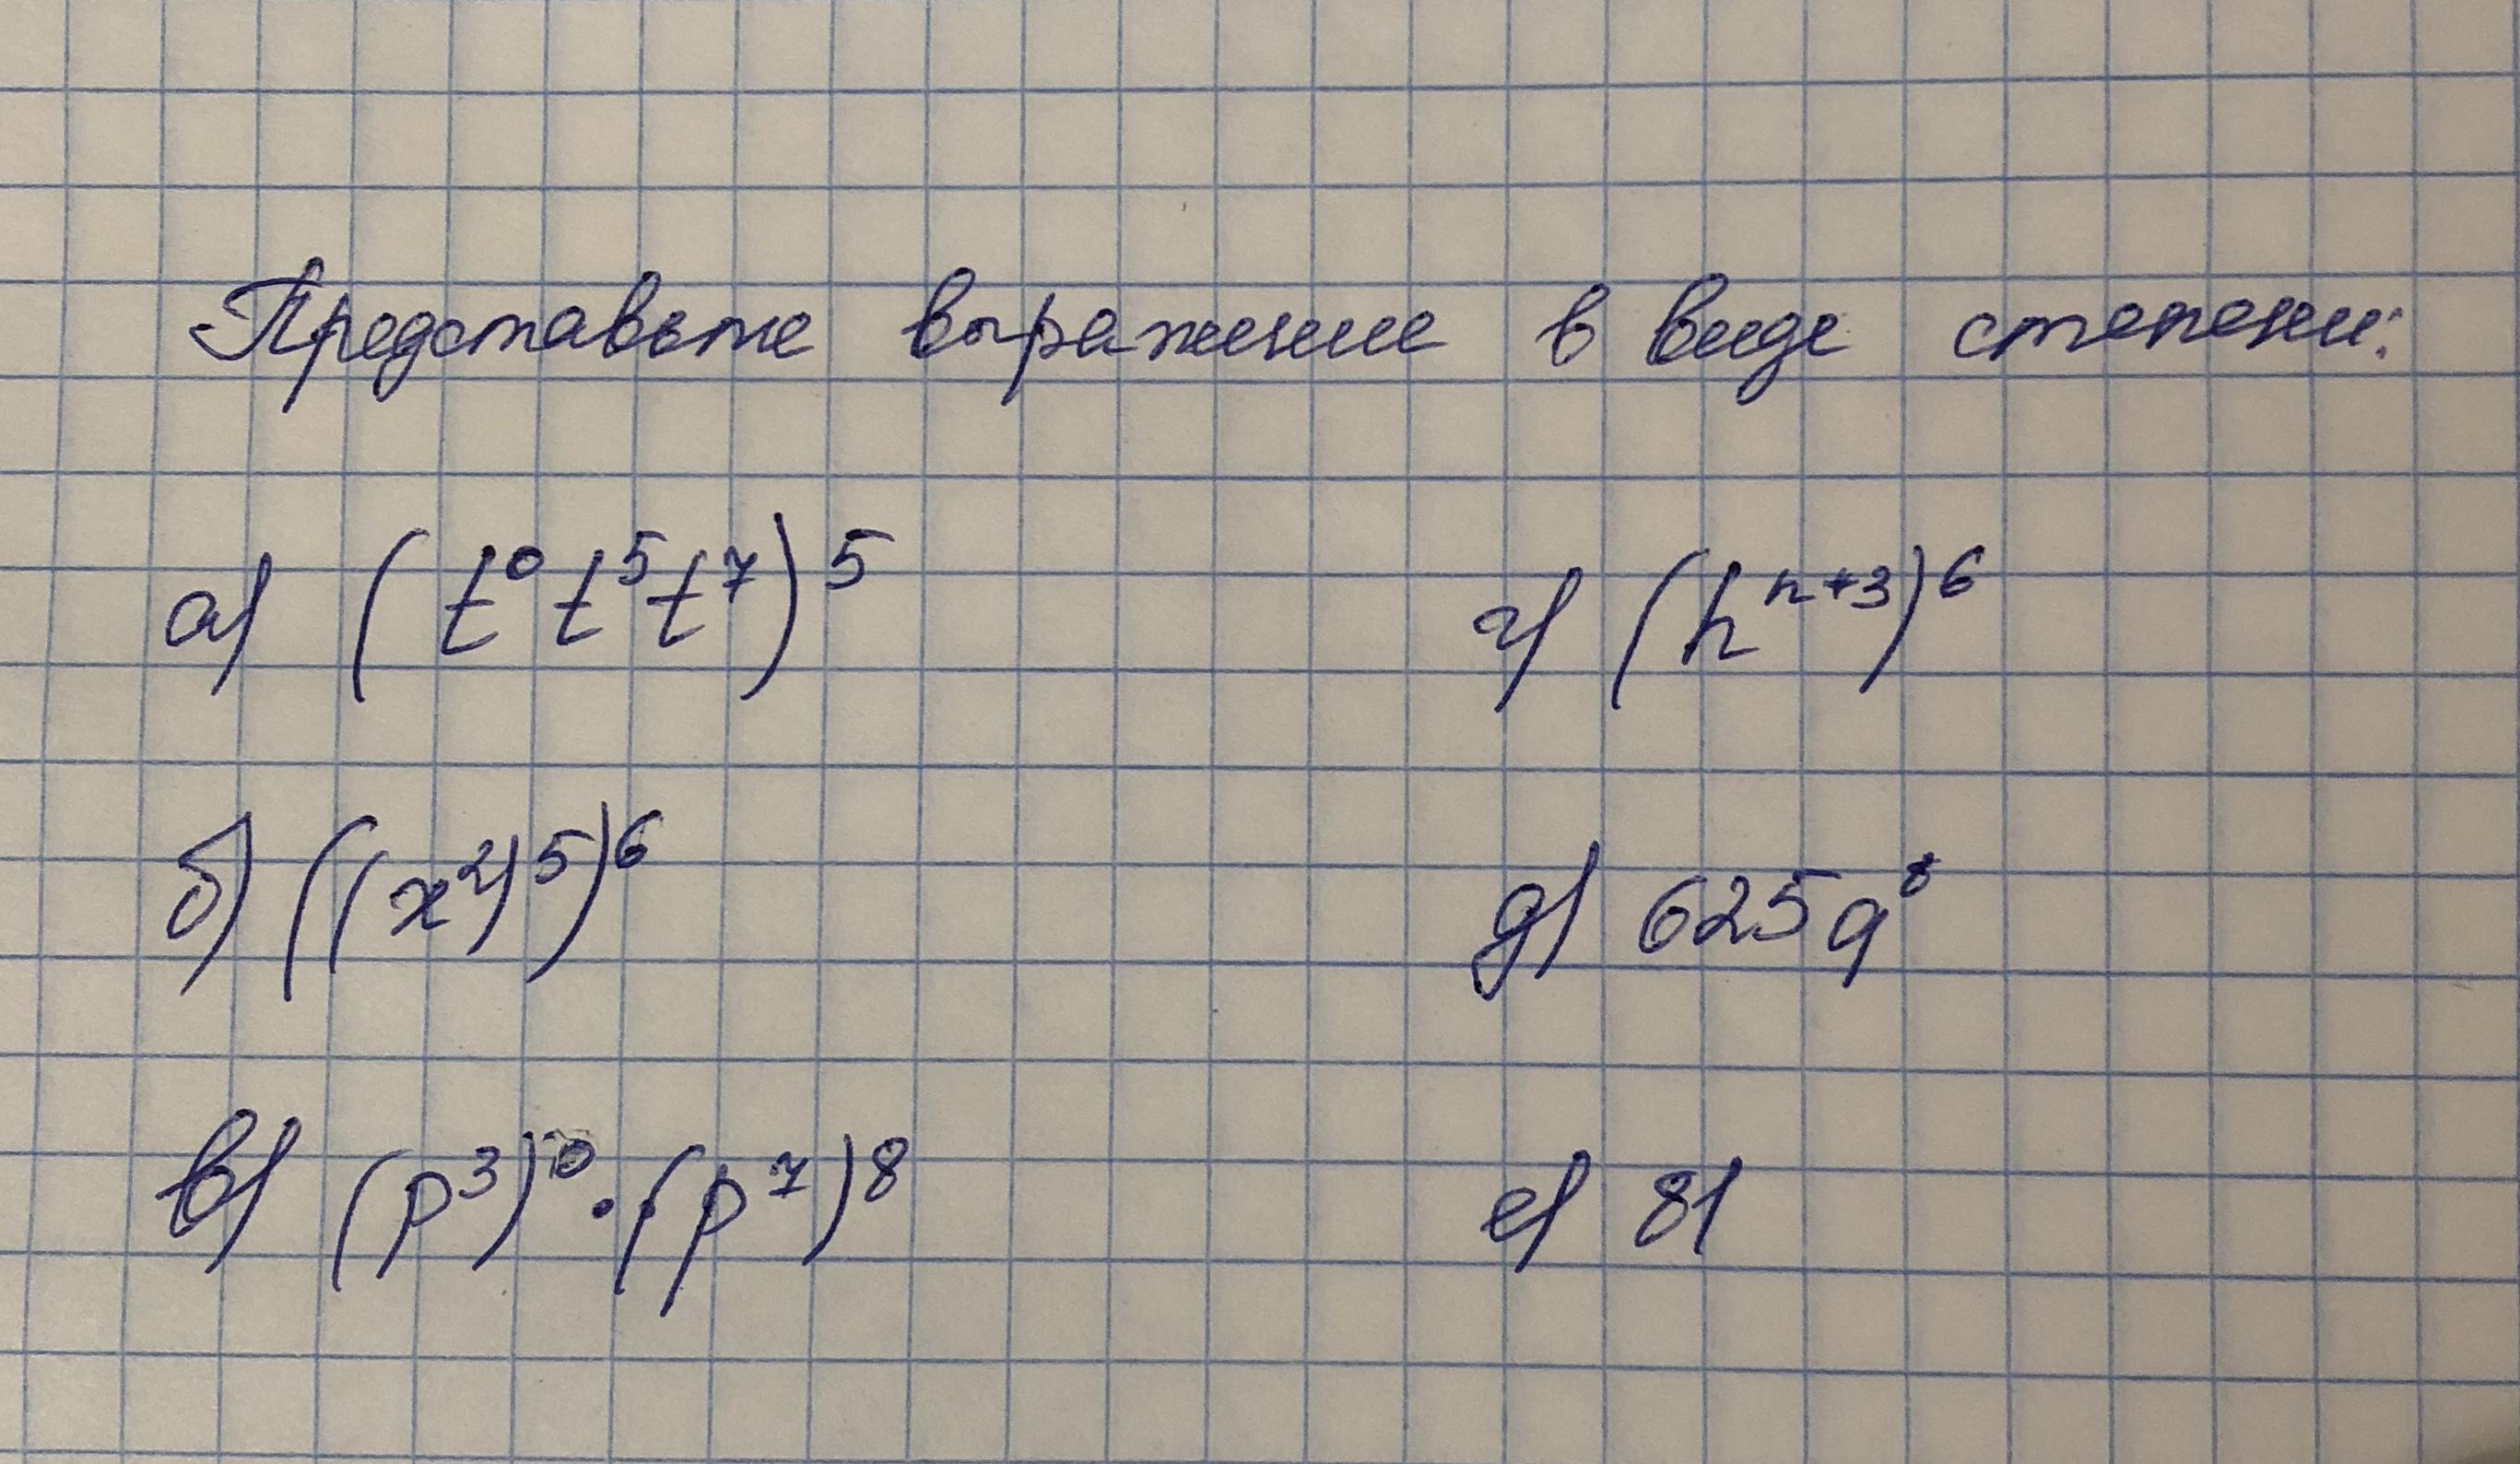 Представьте выражение в виде степени:
а) (t⁰t⁵t⁷)⁵ г) (hⁿ⁺³)⁶
б) ((x²)⁵)⁶ д) 625q⁸
в) (p³)⁰ · (p⁷)⁸ е) 81